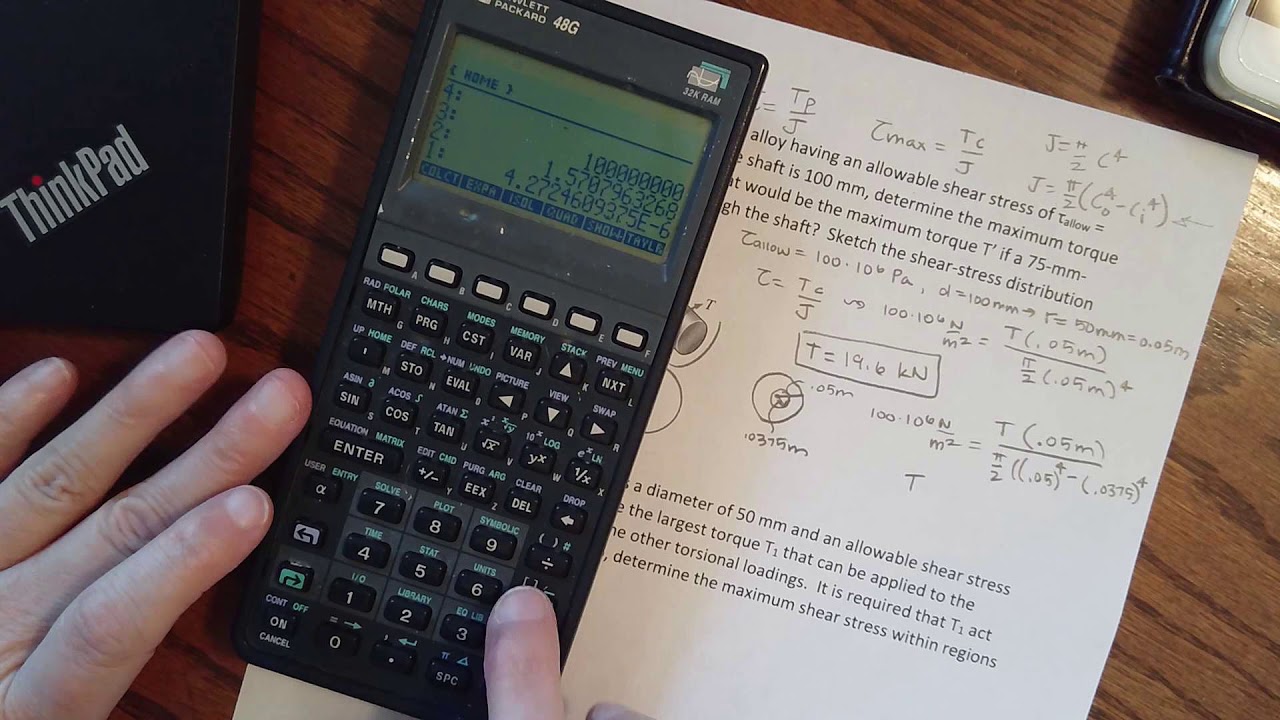 ThinkPad
HEWLETT
PACKARD 48G
32K RAM
{ HOME }
4:
3: 100000000
2: 1.5707963268
1: 4.2724609375E-6
COLCT EXPA ISOL QUAD SHOW TAYLR
A B C D E F
RAD POLAR CHARS MODES MEMORY STACK PREV MENU
MTH PRG CST VAR ▲ NXT
UP HOME DEF RCL →NUM UNDO PICTURE VIEW SWAP
' STO EVAL ◀ ▼ ▶
ASIN ∂ ACOS ∫ ATAN Σ x² ˣ√y 10ˣ LOG eˣ LN
SIN COS TAN √x yˣ 1/x
EQUATION MATRIX EDIT CMD PURG ARG CLEAR DROP
ENTER +/- EEX DEL
USER ENTRY SOLVE PLOT SYMBOLIC ( ) #
α 7 8 9 ÷
TIME STAT UNITS [ ]
4 5 6
I/O LIBRARY EQ LIB
1 2 3
CONT OFF = → , ↵ π ∠
ON 0 . SPC
CANCEL
= Tρ/J
τmax = Tc/J
J = π/2 c⁴
J = π/2 (c₀⁴ - cᵢ⁴) ←
alloy having an allowable shear stress of τallow =
e shaft is 100 mm, determine the maximum torque
at would be the maximum torque T' if a 75-mm-
gh the shaft? Sketch the shear-stress distribution
τallow = 100·10⁶ Pa, d = 100mm → r = 50mm = 0.05m
τ = Tc/J ↝ 100·10⁶ N/m² = T(.05m) / π/2 (.05m)⁴
T
T = 19.6 kN
.05m
.0375m
100·10⁶ N/m² = T(.05m) / π/2 ((.05)⁴ - (.0375)⁴
T
s a diameter of 50 mm and an allowable shear stress
e the largest torque T₁ that can be applied to the
he other torsional loadings. It is required that T₁ act
, determine the maximum shear stress within regions